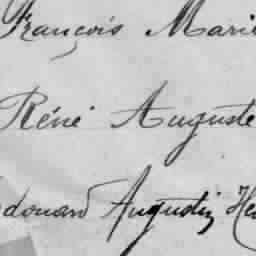 François Marie
Réné Auguste
Edouard Augustin He